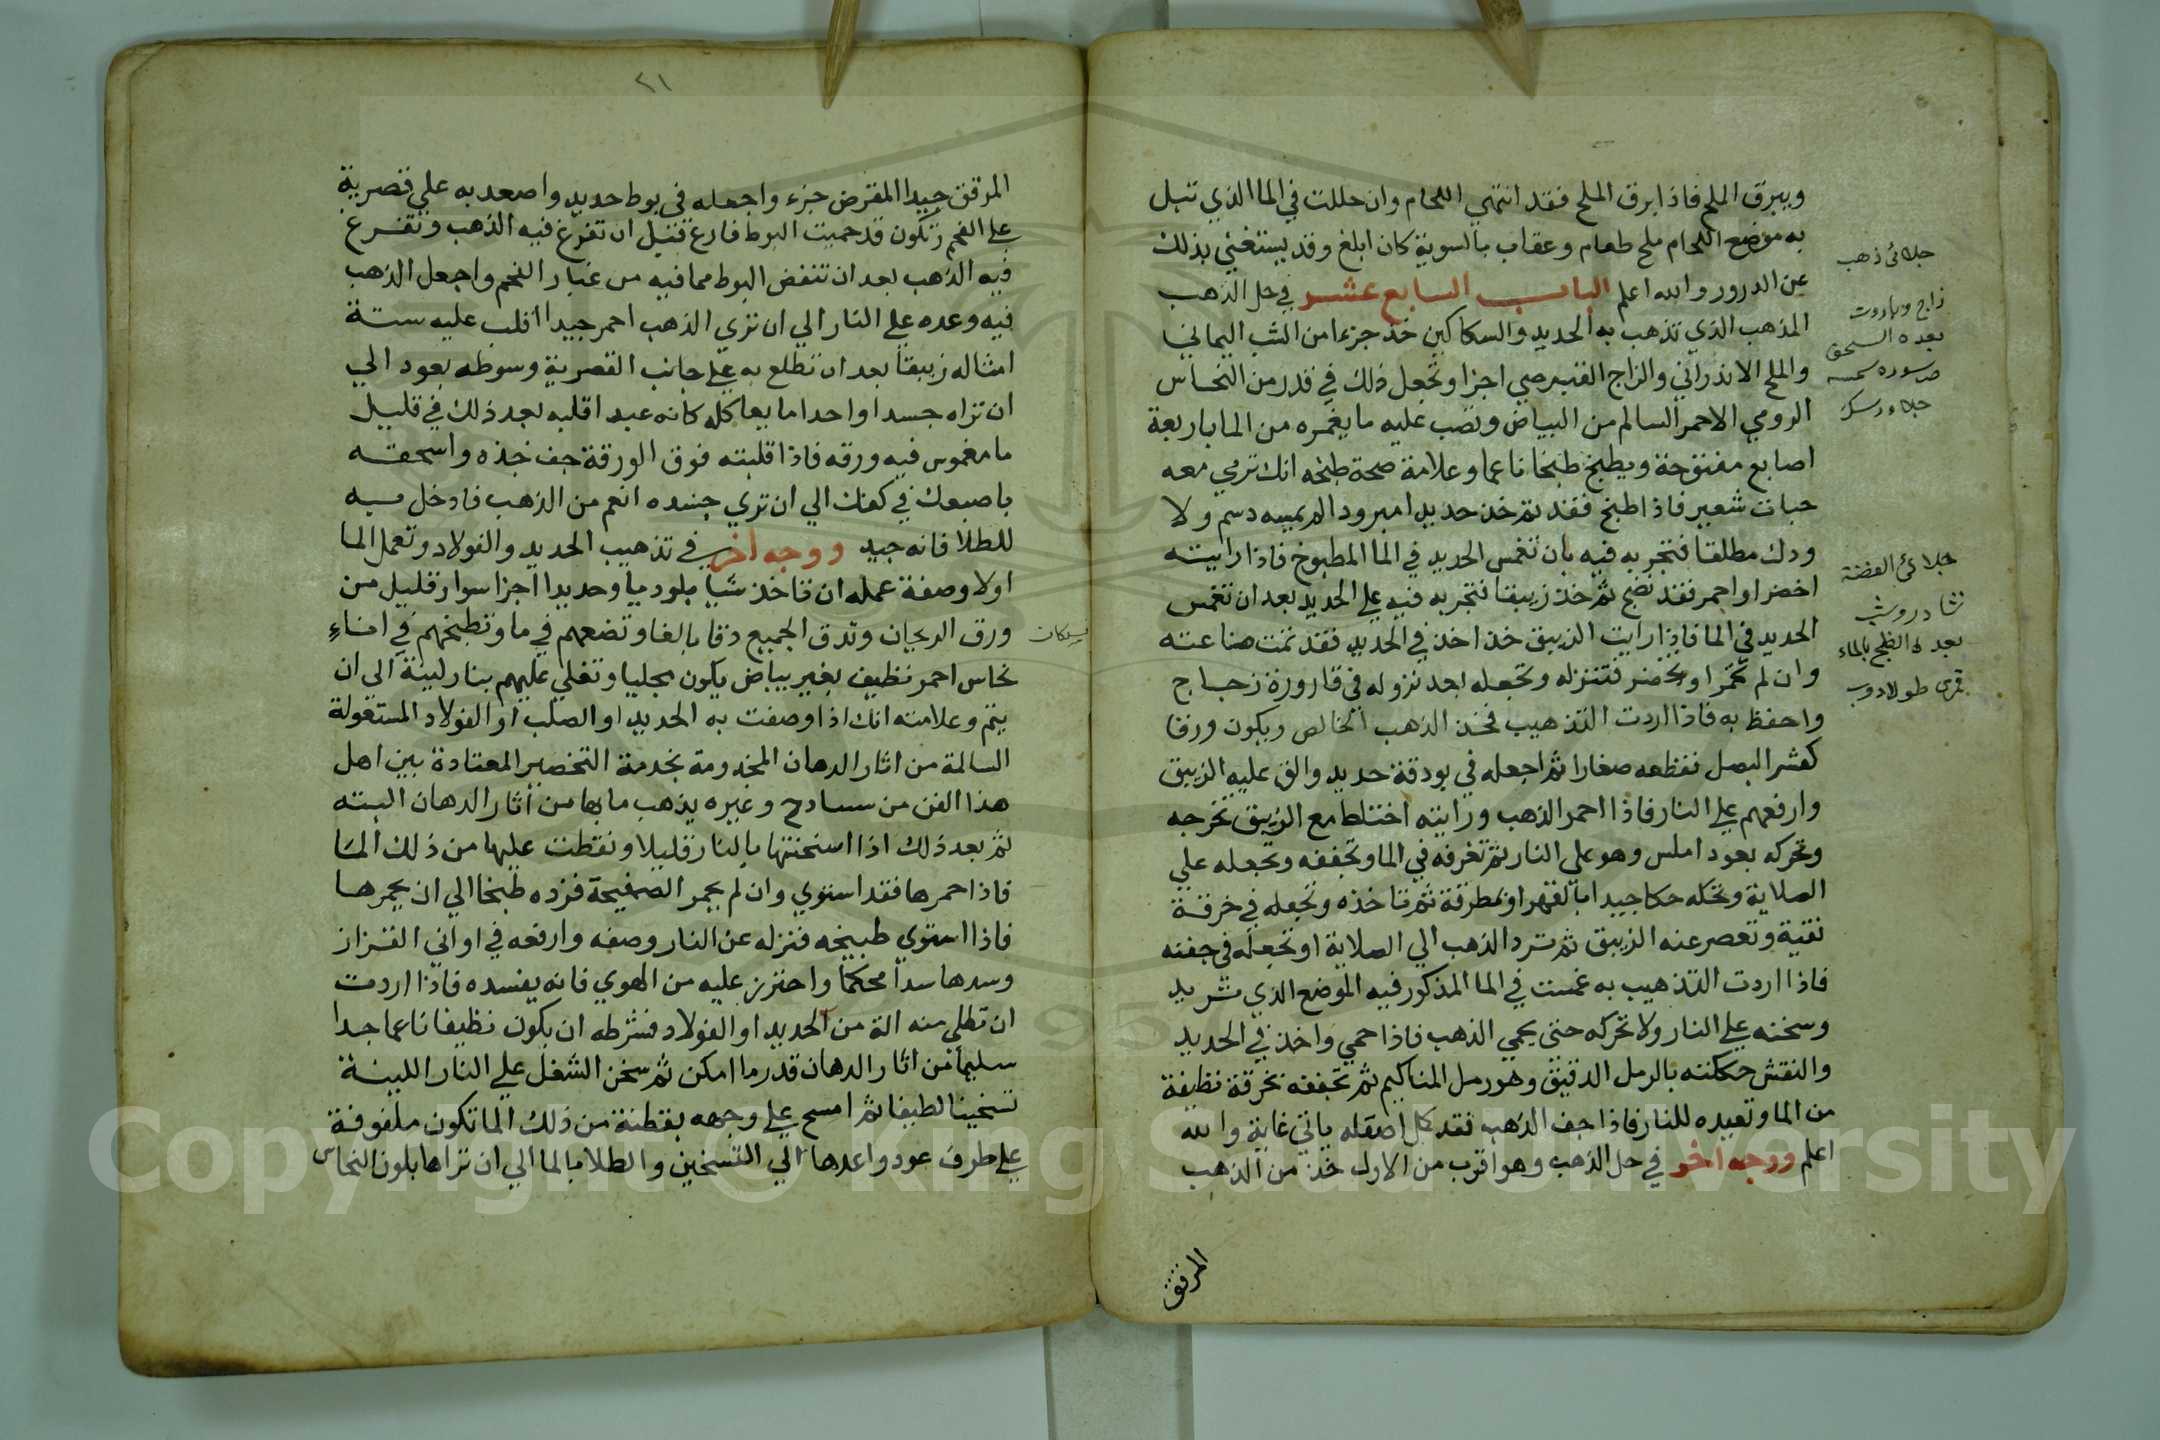 ويبرق الملح فاذا ابرق الملح فقد انتهي اللحام وان حللت في الما الذي تبل
به موضع اللحام ملح طعام وعقاب بالسوية كان ابلغ وقد يستغني بذلك
عن الدرور والله اعلم الباب السابع عشر في حل الذهب
المذهب الذي تذهب به الحديد والسكاكين خذ جزءا من الشب اليماني
والملح الاندراني والزاج القبرصي اجزا وتجعل ذلك في قدر من النحاس
الرومي الاحمر السالم من البياض وتصب عليه ما يغمره من الما باربعة
اصابع مفتوحة ويطبخ طبخا ناعما وعلامة صحة طبخه انك ترمي معه
حبات شعير فاذا طبخ فقد تم خذ حديدا مبرودا لم يمسه دسم ولا
ودك مطلقا فتجربه فيه بان تغمس الحديد في الما المطبوخ فاذا رايته
اخضر او احمر فقد نضج ثم خذ زيبقا فتجربه فيه علي الحديد بعد ان تغمس
الحديد في الما فاذا رايت الزيبق خذ اخذ في الحديد فقد تمت صناعته
وان لم تحمر او يخضر فتنزله وتجعله بعد نزوله في قارورة زجاج
واحفظ به فاذا اردت التذهيب فخذ الذهب الخالص ويكون ورقا
كقشر البصل نقطعه صغارا ثم اجعله في بودقة حديد والق عليه الزيبق
وارفعهم علي النار فاذا احمر الذهب ورايته اختلط مع الزيبق تخرجه
وتحركه بعود املس وهو علي النار ثم تغرفه في الما وتجففه وتجعله علي
الصلاية وتحكه حكا جيدا اما بالفهر او بمطرقة ثم تاخذه وتجعله في خرقة
نقية وتعصر عنه الزيبق ثم ترد الذهب الي الصلاية او تجعله في جفنه
فاذا اردت التذهيب به غمست في الما المذكور فيه الموضع الذي تريد
وسخنه علي النار ولا تحركه حتى يحمي الذهب فاذا حمي واخذ في الحديد
والنقش حككته بالرمل الدقيق وهو رمل المناكيم ثم تجففه بخرقة نظيفة
من الما وتعيده للنار فاذا جف الذهب فقد كمل اصقله ياتي غاية والله
اعلم ووجه اخر في حل الذهب وهو اقرب من الاول خذ من الذهب
المرقق
جلائ ذهب
بعده السحق
جلائ الفضة
نشادروش
بعد له الطبخ بالماء
٢١
المرقق جيدا المقرض جزء واجعله في بوط حديد واصعد به علي قصرية
علي الفحم وتكون قد حميت البوط فارغ قتيل ان تفرغ فيه الذهب وتفرغ
فيه الذهب بعد ان تنفض البوط مما فيه من غبار الفحم واجعل الذهب
فيه وعده علي النار الي ان تري الذهب احمر جيدا اقلب عليه ستة
امثاله زيبقا بعد ان تطلع به علي جانب القصرية وسوطه بعود الي
ان تراه جسدا واحدا مايعا كله كانه عبد اقلبه بعد ذلك في قليل
ما مغموس فيه ورقه فاذا قلبته فوق الورقة جف خذه واسحقه
باصبعك في كفك الي ان تري جسده انعم من الذهب فادخل به
للطلا فانه جيد ووجه اخر في تذهيب الحديد والفولاد وتعمل الما
اولا وصفة عمله ان تاخذ شيا بلوديا وحديدا اجزا سوا وقليل من
ورق الريحان وتدق الجميع دقا بالغا وتضعهم في ما وتطبخهم في اناء
نحاس احمر نظيف بغير بياض يكون مجليا وتغلي عليهم بنار لينة الى ان
يتم وعلامته انك اذا وصفت به الحديد او الصلب او الفولاد المستغولة
السالمة من اثار الدهان المخدومة بخدمة التخضير المعتادة بين اهل
هذا الفن من سسادح وغيره يذهب ما بها من أثار الدهان البته
ثم بعد ذلك اذا اسخنتها بالنار قليلا ونقطت عليها من ذلك الما
فاذا احمرها فقد استوي وان لم يحمر الصفيحة فزده طبخا الي ان يحمرها
فاذا استوي طبيخه فنزله عن النار وصفه وارفعه في اواني القزاز
وسدها سدا محكما واحترز عليه من الهوي فانه يفسده فاذا اردت
ان تطلي منه الة من الحديد او الفولاد فشرطه ان يكون نظيفا ناعما جدا
سليما من اثار الدهان قدر ما امكن ثم سخن الشغل علي النار اللينة
تسخينا لطيفا ثم امسح علي وجهه بقطنة من ذلك الما تكون ملفوفة
علي طرف عود واعدها الي التسخين والطلا بالما الي ان تراها بلون النحاس
Copyright © King Saud University